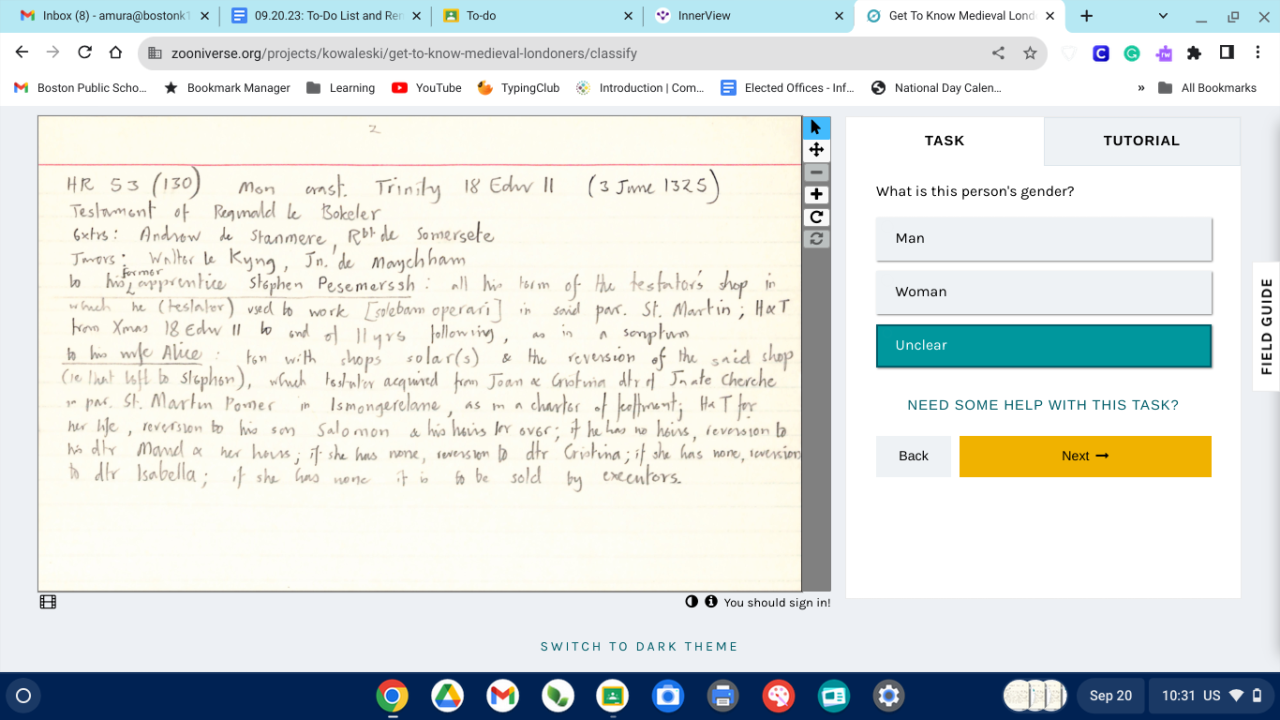 Inbox (8) - amura@bostonk1
09.20.23: To-Do List and Ren
To-do
InnerView
Get To Know Medieval Lond
zooniverse.org/projects/kowaleski/get-to-know-medieval-londoners/classify
Boston Public Scho...
Bookmark Manager
Learning
YouTube
TypingClub
Introduction | Com...
Elected Offices - Inf...
National Day Calen...
»
All Bookmarks
2
HR 53 (130) Mon crast. Trinity 18 Edw II (3 June 1325)
Testament of Reginald le Bokeler
Extrs: Andrew de Stanmere, Rbt de Somersete
Walter le Kyng, Jn. de Maychham
former
to his apprentice Stephen Pesemerssh: all his term of the testator's shop in
which he (testator) used to work [solebam operari] in said par. St. Martin; H&T
from Xmas 18 Edw II to end of 11 yrs following, as in a scriptum
to his wife Alice: ten with shops solar(s) & the reversion of the said shop
(ie that left to Stephen), which testator acquired from Joan & Cristina dtr of Jn atte Cherche
in par. St. Martin Pomer in Ismongerelane, as in a charter of feoffment; H&T for
her life, reversion to his son Salomon & his heirs for ever; if he has no heirs, reversion to
his dtr Maud & her heirs; if she has none, reversion to dtr Cristina; if she has none, reversion
to dtr Isabella; if she has none it is to be sold by executors.
You should sign in!
SWITCH TO DARK THEME
TASK
TUTORIAL
What is this person's gender?
Man
Woman
Unclear
NEED SOME HELP WITH THIS TASK?
Back
Next →
FIELD GUIDE
Sep 20
10:31 US